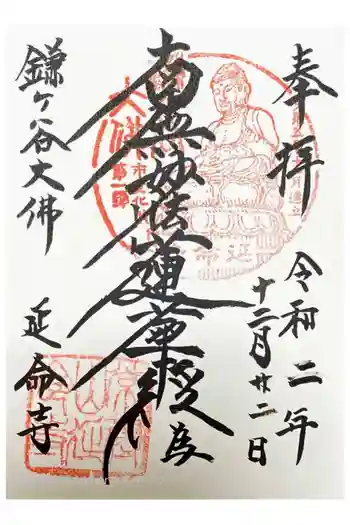 奉拝
令和二年
十二月廿二日
南無妙法蓮華経
為
鎌ケ谷大佛
延命寺
大佛